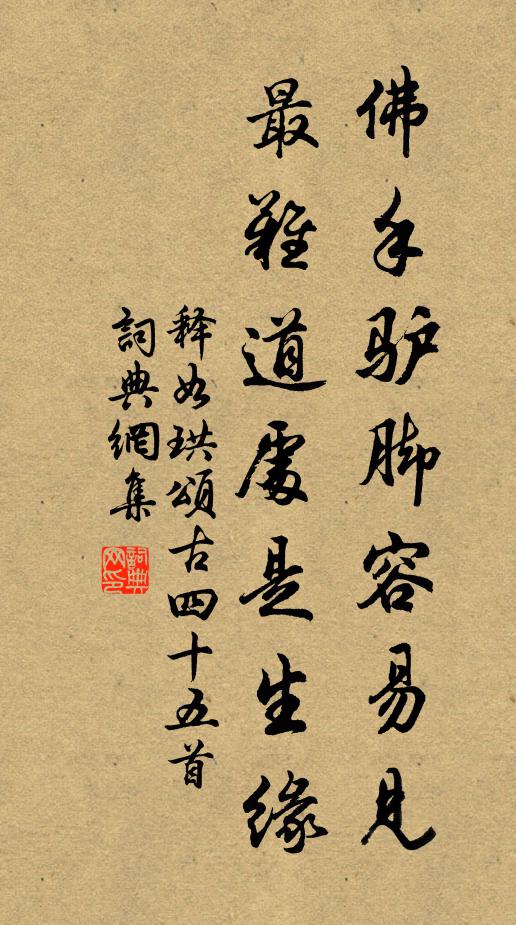 佛手驴脚容易见
最難道處是生緣
释如珙頌古四十五首
詞典網集
詞典网印